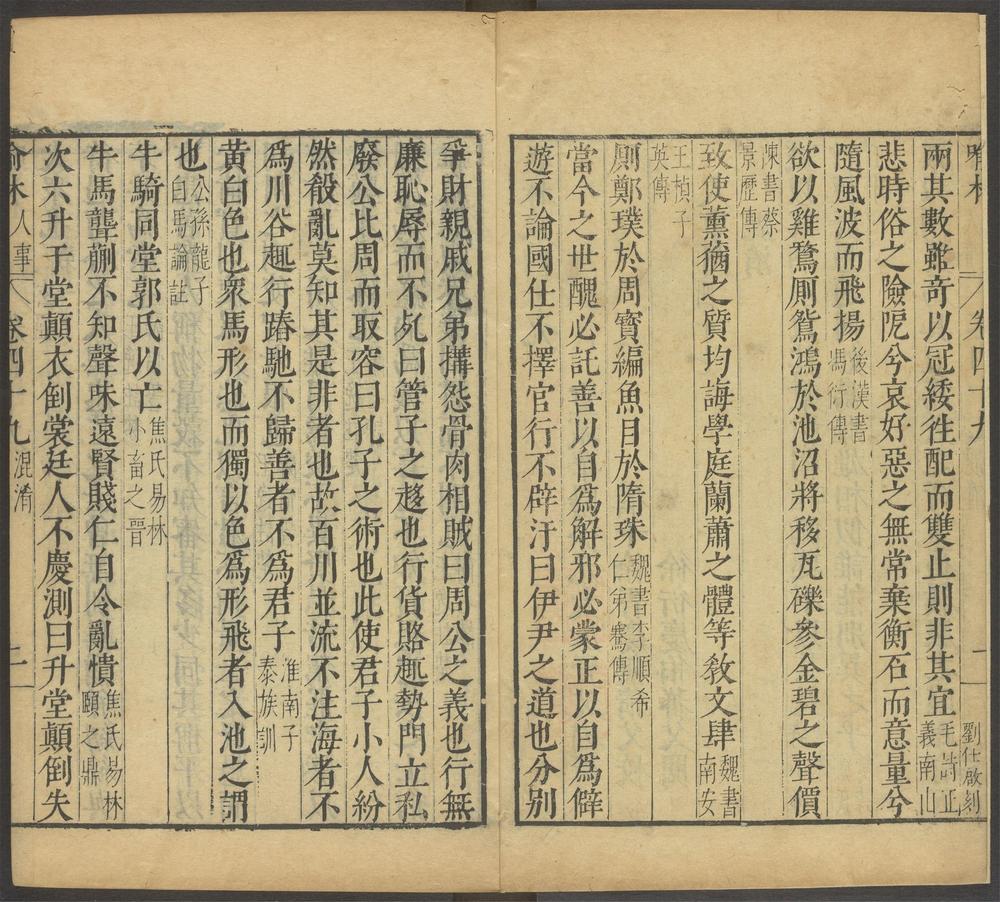 喻林 卷四十九 一 劉仕啟刻
兩其數雖奇以冠綏徃配而雙止則非其宜 毛詩正義南山
悲時俗之險阨兮哀好惡之無常棄衡石而意量兮
隨風波而飛揚 後漢書馮衍傳
欲以雞鶩厠鴛鴻於池沼將移瓦礫參金碧之聲價
陳書蔡景歷傳
致使薰蕕之質均誨學庭蘭蕭之體等敎文肆 魏書南安
王楨子英傳
厠鄭璞於周寶編魚目於隋珠 魏書李順希仁弟騫傳
當今之世醜必託善以自爲解邪必蒙正以自爲僻
遊不論國仕不擇官行不辟汙曰伊尹之道也分別
爭財親戚兄弟搆怨骨肉相賊曰周公之義也行無
廉恥辱而不死曰管子之趍也行貨賂趣勢門立私
廢公比周而取容曰孔子之術也此使君子小人紛
然殽亂莫知其是非者也故百川並流不注海者不
爲川谷趣行踳馳不歸善者不爲君子 淮南子泰族訓
黃白色也衆馬形也而獨以色爲形飛者入池之謂
也 公孫龍子白馬論註
牛騎同堂郭氏以亡 焦氏易林小畜之晉
牛馬聾蒯不知聲味遠賢賤仁自令亂憒 焦氏易林頤之鼎
次六升于堂顛衣到裳廷人不慶測曰升堂顛倒失
喻林 人事 卷四十九 混淆 二